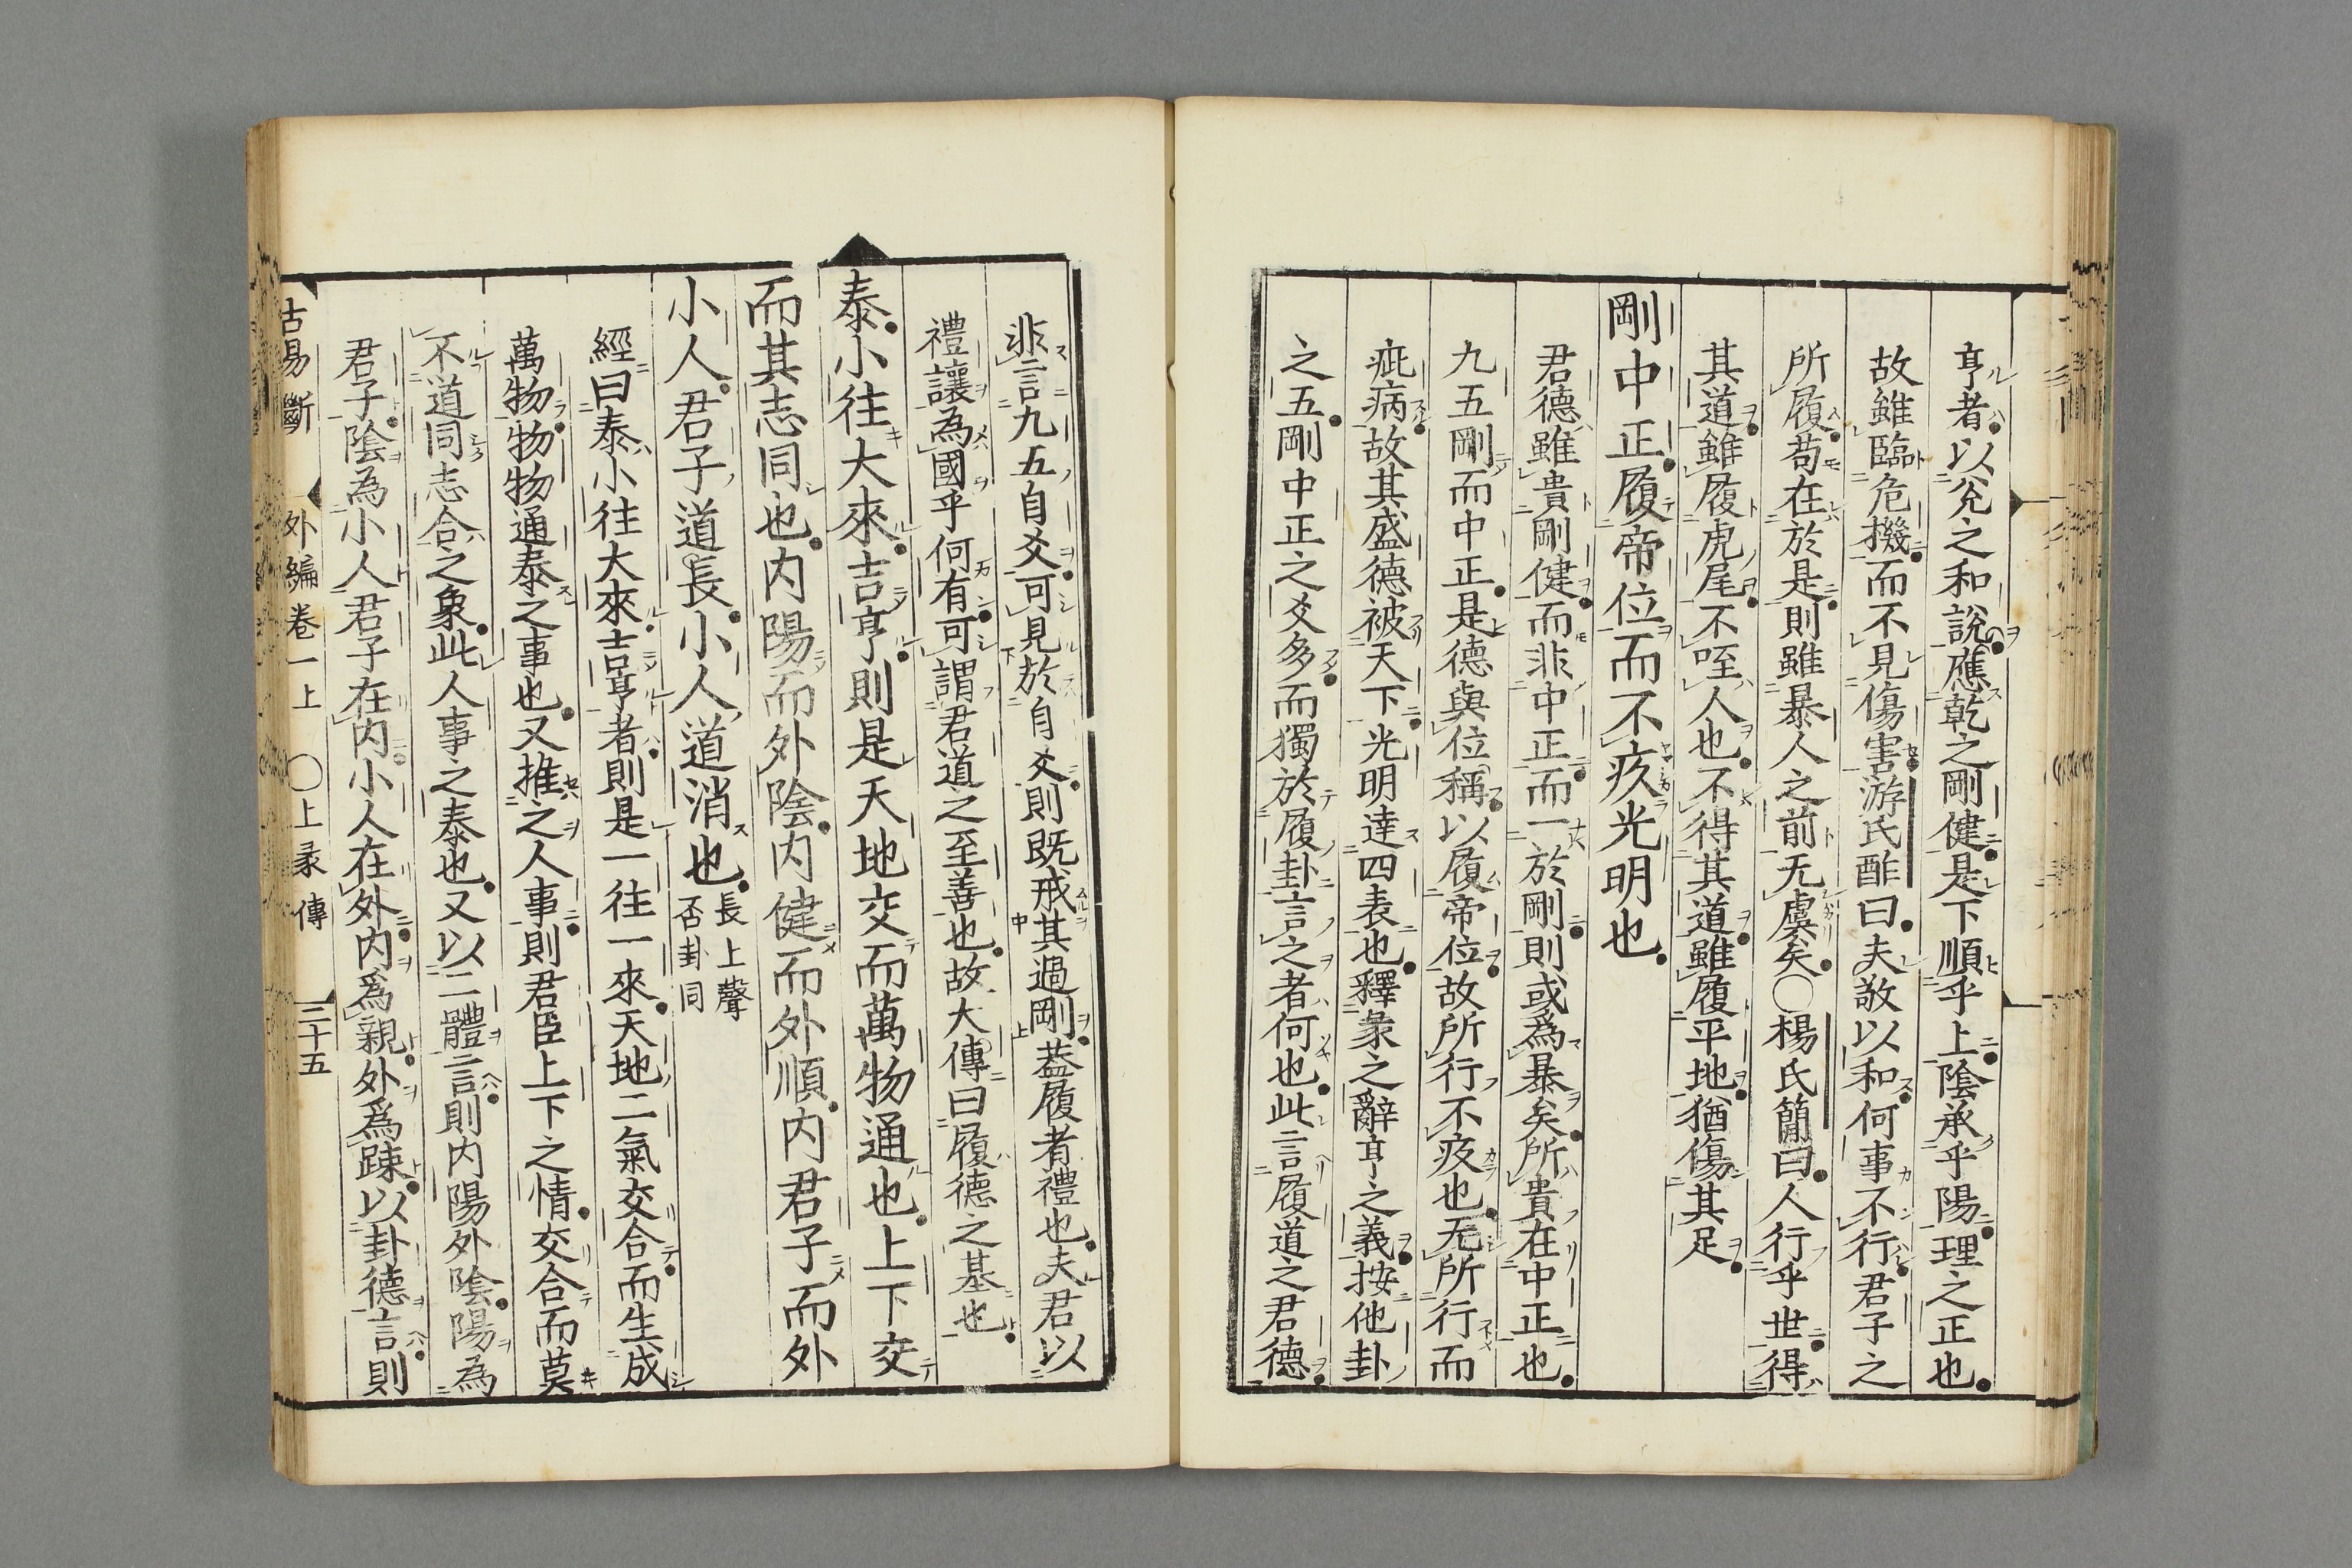 亨者以兌之和說應乾之剛健是下順乎上陰承乎陽理之正也
故雖臨危機而不見傷害游氏酢曰夫敬以和何事不行君子之
所履苟在於是則雖暴人之前无虞矣○楊氏簡曰人行乎世得
其道雖履虎尾不咥人也不得其道雖履平地猶傷其足
剛中正履帝位而不疚光明也
君德雖貴剛健而非中正而一於剛則或爲暴矣所貴在中正也
九五剛而中正是德與位稱以履帝位故所行不疚也无所行而
疵病故其盛德被天下光明達四表也釋彖之辭亨之義按他卦
之五剛中正之爻多而獨於履卦言之者何也此言履道之君德
非言九五自爻可見於自爻則既戒其過剛葢履者禮也夫君以
禮讓為國乎何有可謂君道之至善也故大傳曰履德之基也
泰小往大來吉亨則是天地交而萬物通也上下交
而其志同也内陽而外陰内健而外順内君子而外
小人君子道長小人道消也長上聲
否卦同
經曰泰小往大來吉亨者則是一往一來天地二氣交合而生成
萬物物物通泰之事也又推之人事則君臣上下之情交合而莫
不道同志合之象此人事之泰也又以二體言則内陽外陰陽為
君子陰為小人君子在内小人在外内爲親外爲踈以卦德言則
古易斷 外編卷一上 ○上彖傳 三十五